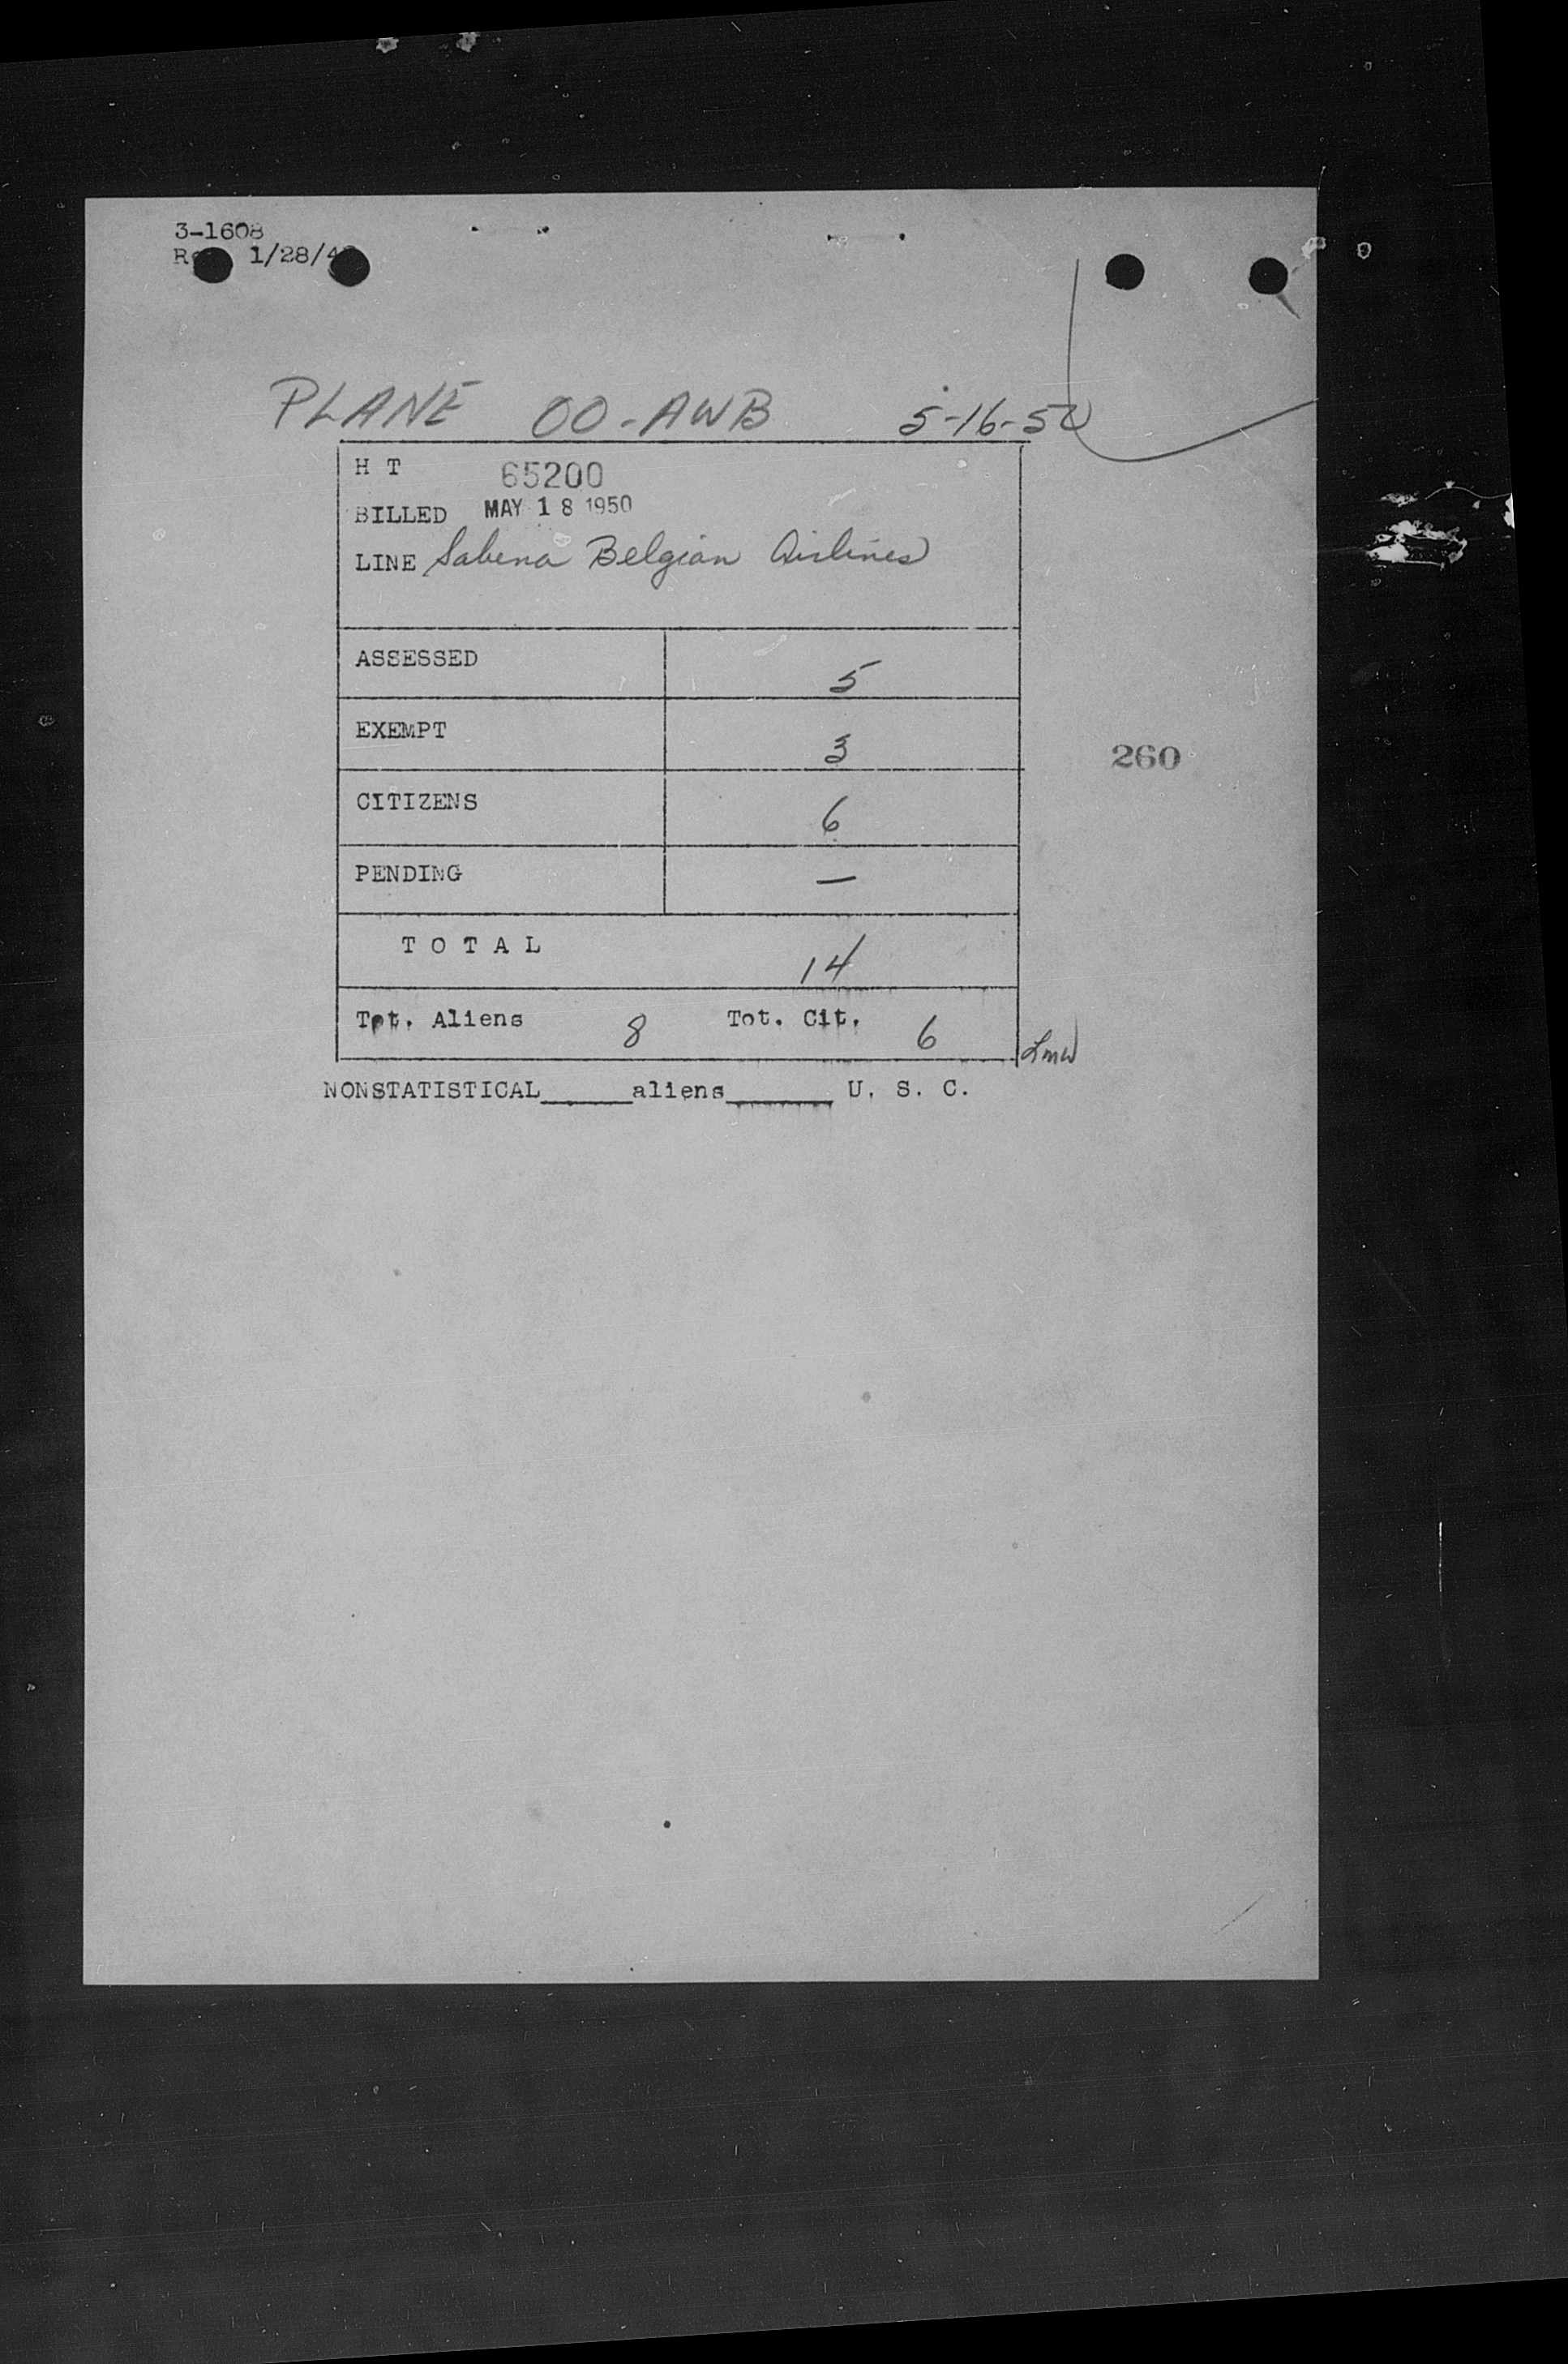 3-1608
1/28/4
PLANE OO-AWB 5-16-50
H T 65200
BILLED MAY 18 1950
LINE Sabena Belgian Airlines
ASSESSED 5
EXEMPT 3
260
CITIZENS 6
PENDING —
TOTAL 14
Tot. Aliens 8 Tot. Cit. 6 Lmw
NONSTATISTICAL_____aliens______ U. S. C.